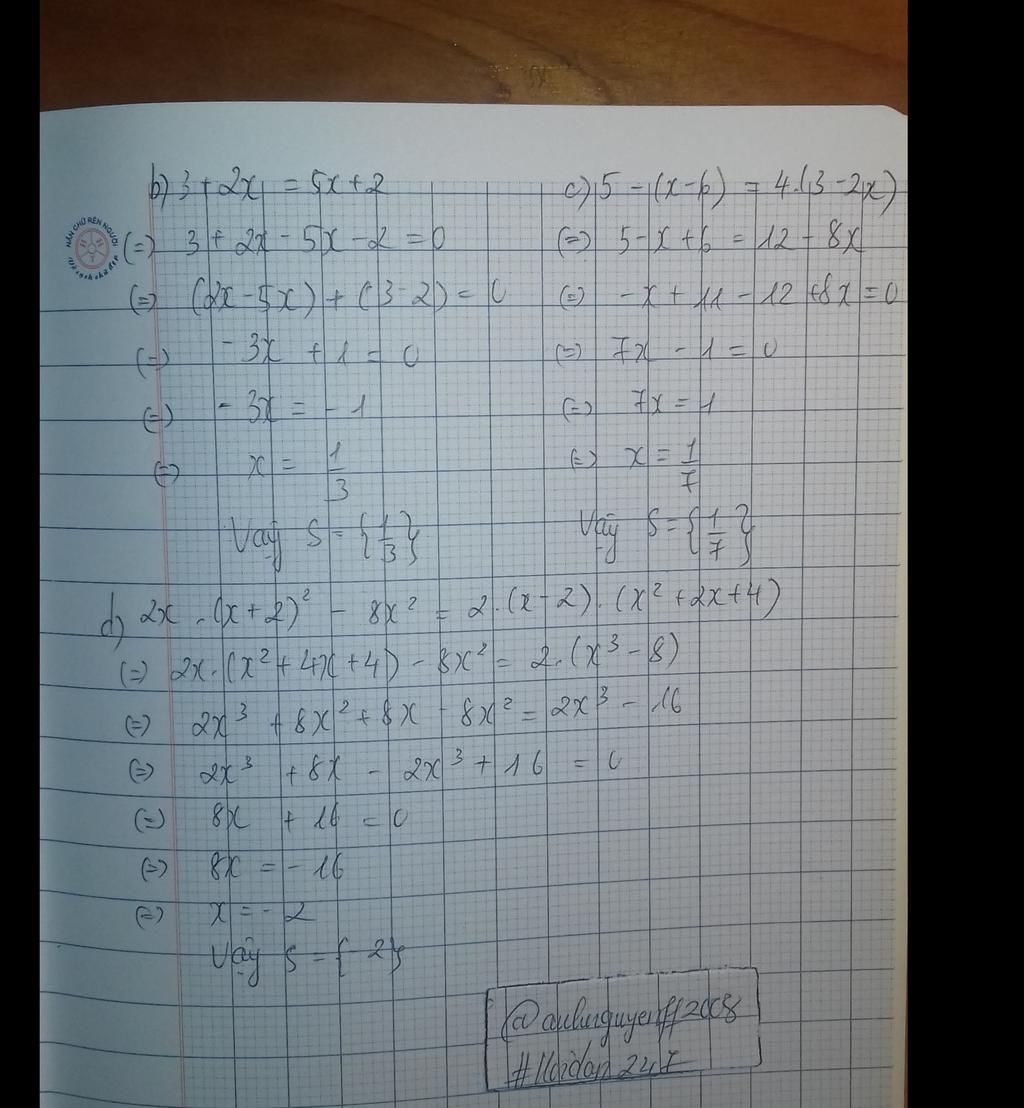 b) 3 + 2x = 5x + 2
(=) 3 + 2x - 5x - 2 = 0
(=) (2x - 5x) + (3 - 2) = 0
(=) - 3x + 1 = 0
(=) - 3x = - 1
(=) x = 1/3
Vậy S = {1/3}
c) 5 - (x - 6) = 4.(3 - 2x)
(=) 5 - x + 6 = 12 - 8x
(=) -x + 11 - 12 + 8x = 0
(=) 7x - 1 = 0
(=) 7x = 1
(=) x = 1/7
Vậy S = {1/7}
d) 2x . (x + 2)² - 8x² = 2.(x - 2).(x² + 2x + 4)
(=) 2x.(x² + 4x + 4) - 8x² = 2.(x³ - 8)
(=) 2x³ + 8x² + 8x - 8x² = 2x³ - 16
(=) 2x³ + 8x - 2x³ + 16 = 0
(=) 8x + 16 = 0
(=) 8x = - 16
(=) x = - 2
Vậy S = {- 2}
NẮN CHỮ RÈN NGƯỜI